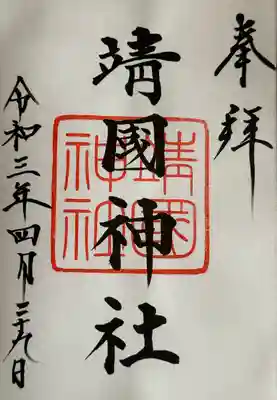 奉拝
靖國神社
靖國
神社
令和三年四月二十九日